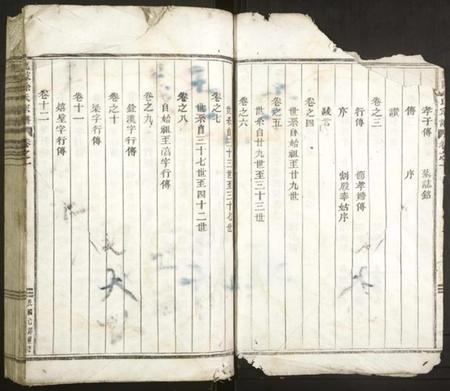 孝子傳 墓誌銘
傳 序
讚
卷之三
行傳 節孝婦傳
序 割股奉姑序
誡言
卷之四
世系自始祖至廿九世
卷之五
世系自廿九世至三十三世
卷之六
世系自三十三世至三十七世
卷之七
世系自三十七世至四十二世
卷之八
自始祖至高字行傳
卷之九
銓漢字行傳
卷之十
梁字行傳
卷十一
熺璧字行傳
卷十二
徐氏宗譜 卷之一